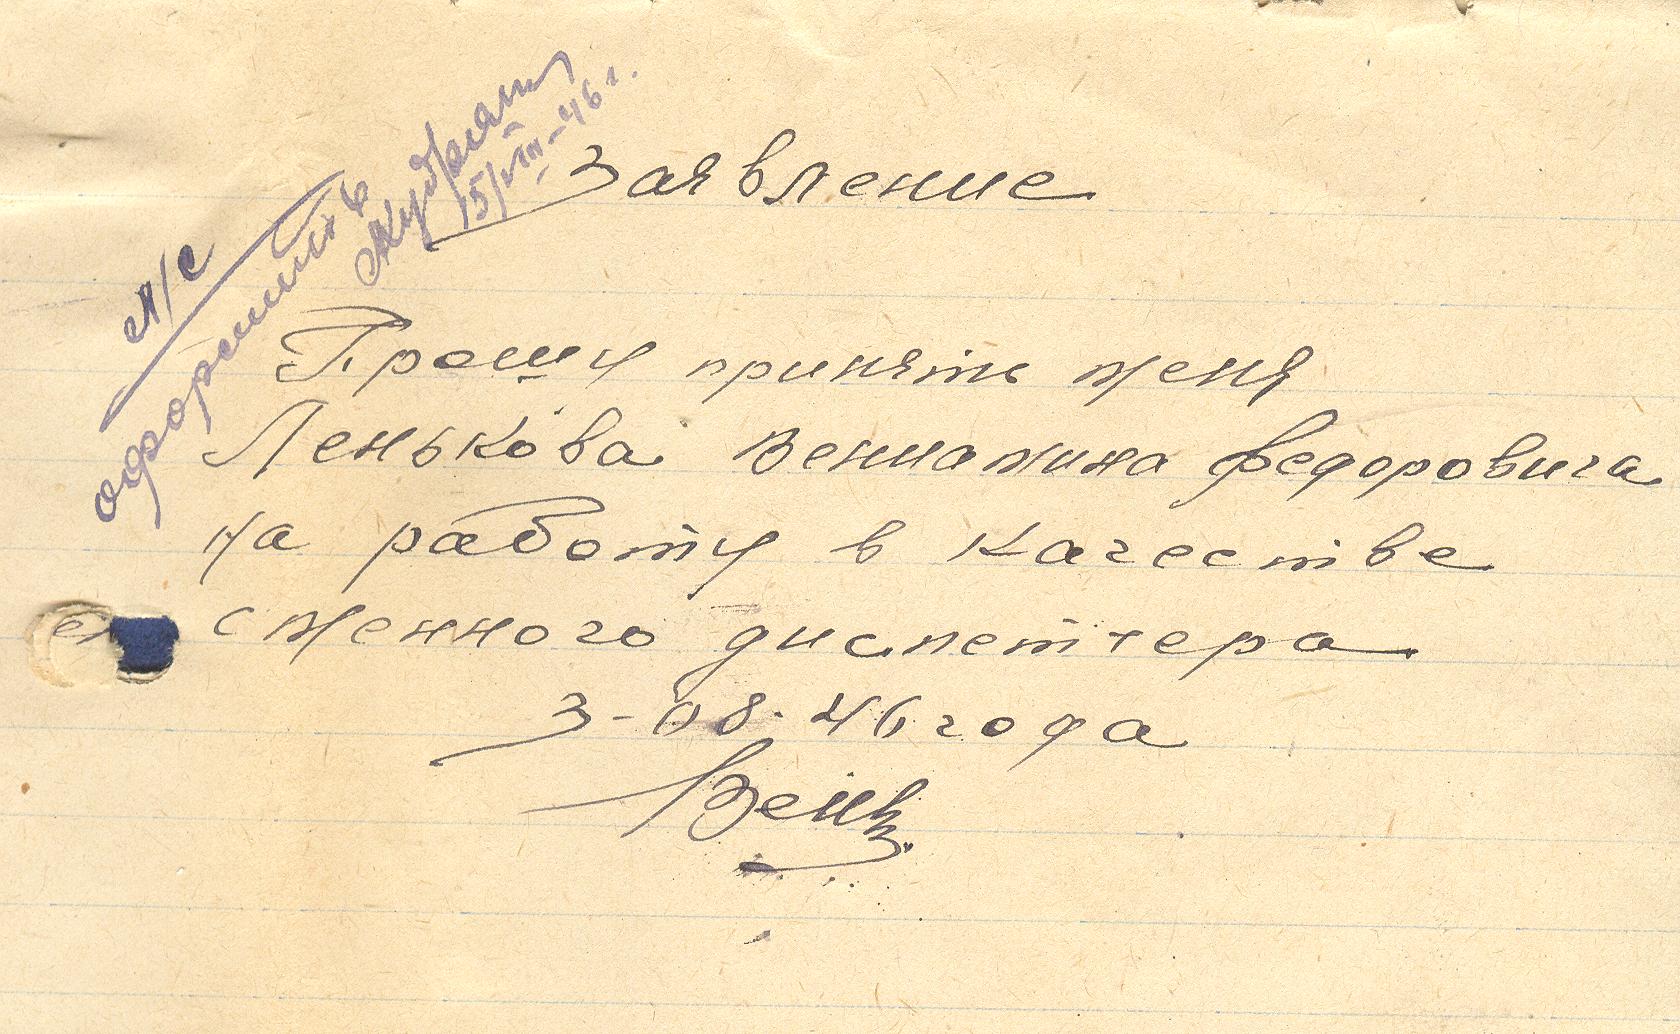 Л/С
оформить
15/VIII-46 г.
Заявление
Прошу принять меня
Ленькова Вениамина Федоровича
на работу в качестве
сменного диспетчера
3-08-46 года